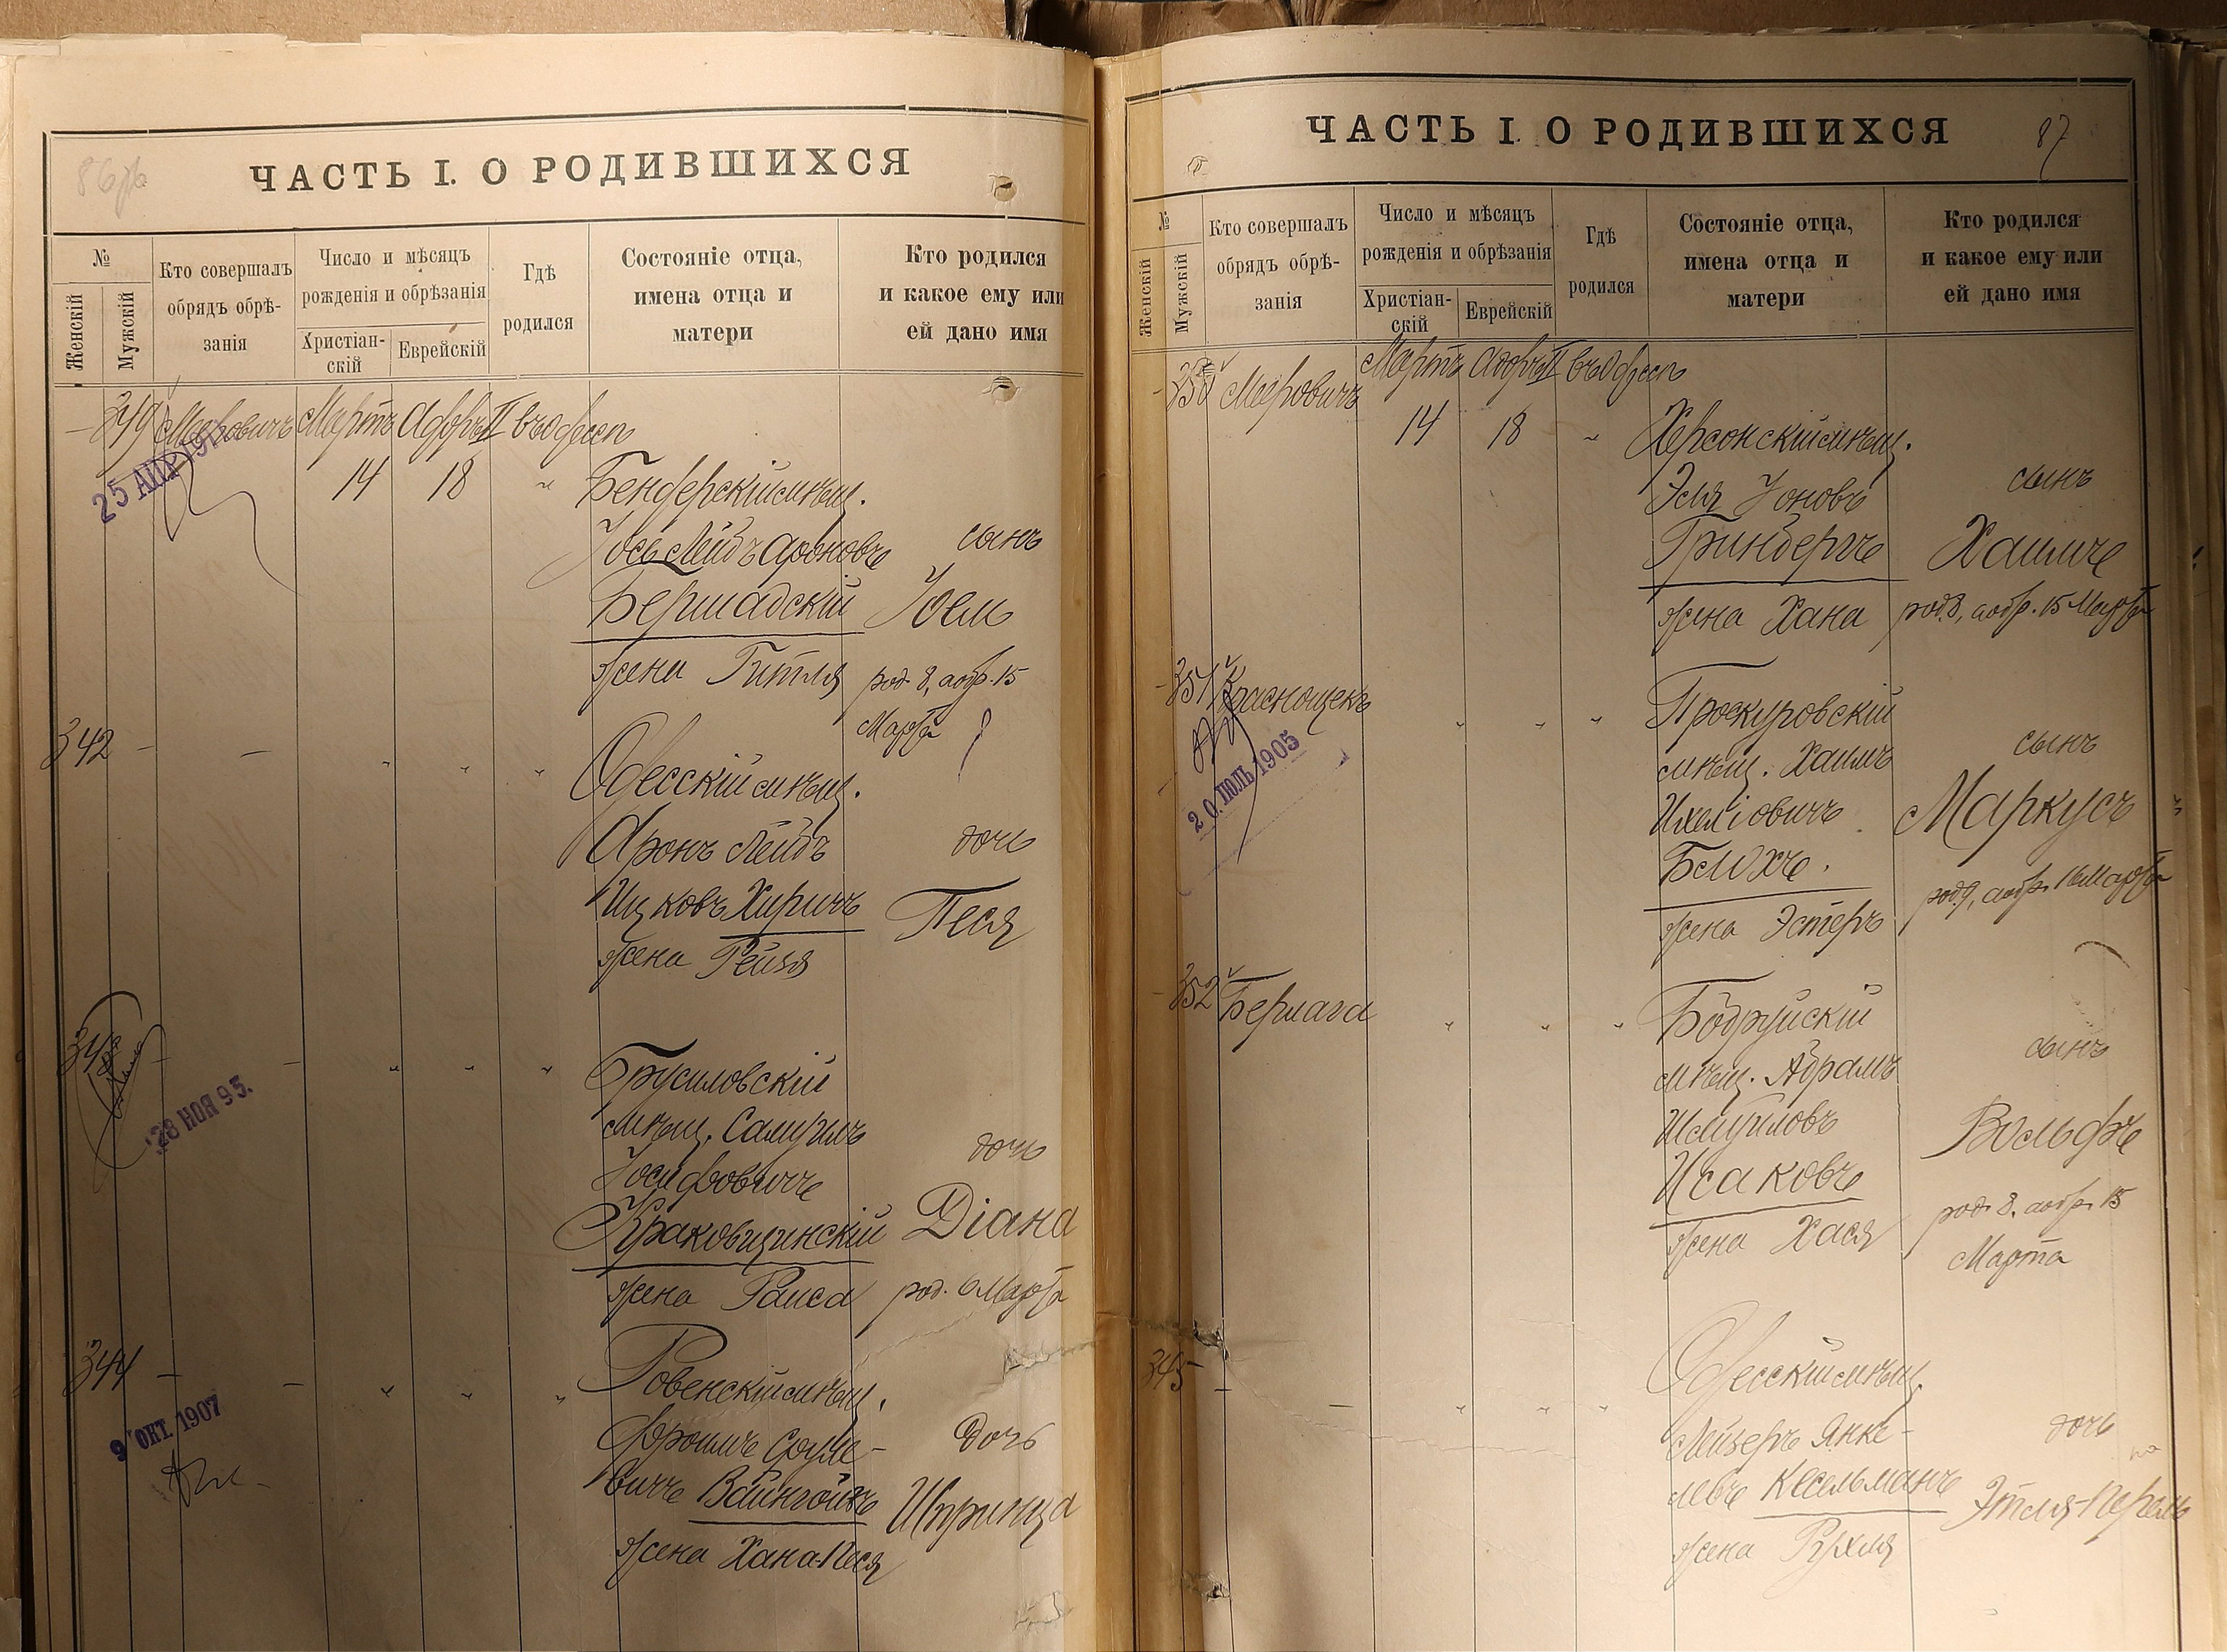 86об
ЧАСТЬ I. О РОДИВШИХСЯ
№
Женскій
Мужскій
Кто совершалъ
обрядъ обрѣ-
занія
Число и мѣсяцъ
рожденія и обрѣзанія
Христіан-
скій
Еврейскій
Гдѣ
родился
Состояніе отца,
имена отца и
матери
Кто родился
и какое ему или
ей дано имя
349 Мееровичъ Мартъ Адаръ II въ Одессѣ
25 АПР 191
14 18 " Бендерскій мѣщ.
Іось Лейбъ Ароновъ сынъ
Бершадскій Іоель
жена Гитля род. 8, аобр. 15
Марта
342 - - " " " Одесскій мѣщ.
Аронъ Лейбъ дочь
Ицковъ Хиричъ Песя
жена Рейзя
343 - - " " " Брусиловскій
мѣщ. Самуилъ дочь
Іосифовичъ
Краковщинскій Діана
жена Раиса род. 6 Марта
28 НОЯ 95.
344 - - " " " Ровенскій мѣщ.
Фроимъ Сруле- дочь
вичъ Вайнгойзъ Шпринца
жена Хана-Песя
9 ОКТ. 1907
87
ЧАСТЬ I. О РОДИВШИХСЯ
№
Женскій
Мужскій
Кто совершалъ
обрядъ обрѣ-
занія
Число и мѣсяцъ
рожденія и обрѣзанія
Христіан-
скій
Еврейскій
Гдѣ
родился
Состояніе отца,
имена отца и
матери
Кто родился
и какое ему или
ей дано имя
350 Мееровичъ Мартъ Адаръ II въ Одессѣ
14 18 " Херсонскій мѣщ.
Эля Іоновъ сынъ
Гринбергъ Хаимъ
жена Хана род. 8, аобр. 15 Марта
351 Краснощекъ " " " Проскуровскій
мѣщ. Хаимъ сынъ
Ихеліовичъ Маркусъ
Блохъ.
жена Эстеръ род. 9, аобр. 16 Марта
20 ІЮЛЬ 1905
352 Берлага " " " Бобруйскій
мѣщ. Абрамъ сынъ
Шмуиловъ Вольфъ
Исаковъ
жена Хася род. 8, аобр. 15
Марта
345 - - " " " Одесскій мѣщ.
Лейзеръ Янке- дочь
левъ Кесельманъ Этля-Перель
жена Рухля